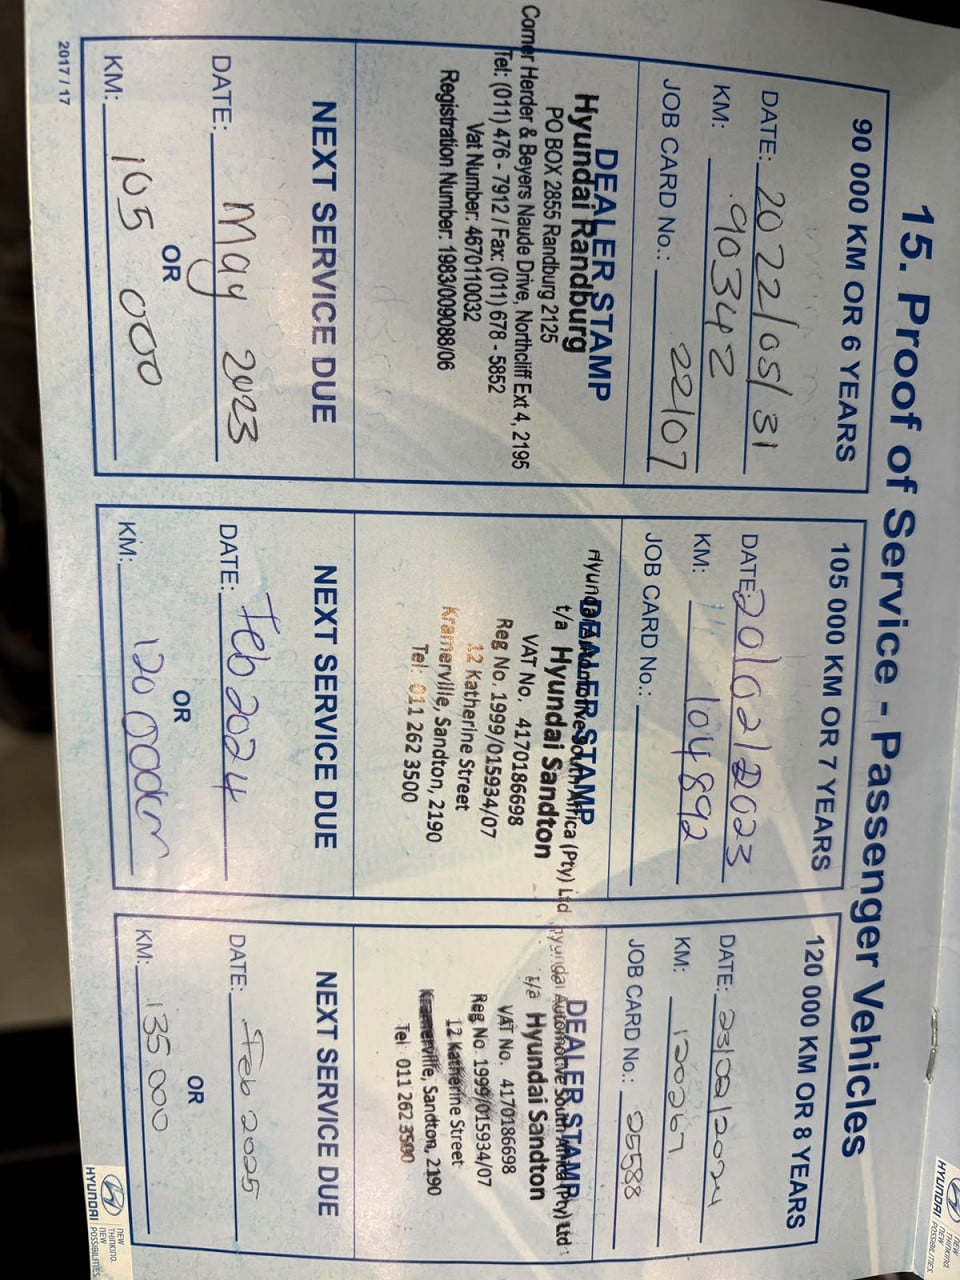 15. Proof of Service - Passenger Vehicles
90 000 KM OR 6 YEARS
DATE: 2022/05/31
KM: 90342
JOB CARD No.: 22107
DEALER STAMP
Hyundai Randburg
PO BOX 2855 Randburg 2125
Corner Herder & Beyers Naude Drive, Northcliff Ext 4, 2195
Tel: (011) 476 - 7912 / Fax: (011) 678 - 5852
Vat Number: 4670110032
Registration Number: 1983/009088/06
NEXT SERVICE DUE
DATE: May 2023
OR
KM: 105 000
105 000 KM OR 7 YEARS
DATE: 20/02/2023
KM: 104892
JOB CARD No.:
DEALER STAMP
Hyundai Automotive South Africa (Pty) Ltd
t/a Hyundai Sandton
VAT No. 4170186698
Reg No. 1999/015934/07
12 Katherine Street
Kramerville, Sandton, 2190
Tel: 011 262 3500
NEXT SERVICE DUE
DATE: Feb 2024
OR
KM: 120 000km
120 000 KM OR 8 YEARS
DATE: 23/02/2024
KM: 120267
JOB CARD No.: 25588
DEALER STAMP
Hyundai Automotive South Africa (Pty) Ltd
t/a Hyundai Sandton
VAT No. 4170186698
Reg No. 1999/015934/07
12 Katherine Street
Kramerville, Sandton, 2190
Tel: 011 262 3500
NEXT SERVICE DUE
DATE: Feb 2025
OR
KM: 135 000
2017 / 17
HYUNDAI
NEW THINKING.
NEW POSSIBILITIES.
HYUNDAI
NEW THINKING.
NEW POSSIBILITIES.